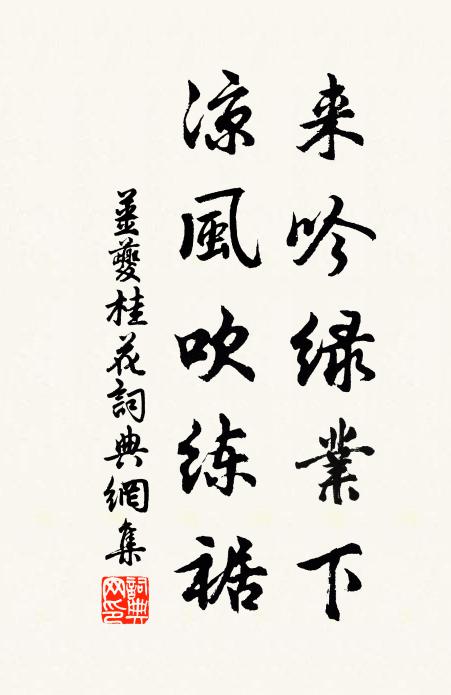 来吟绿業下
凉風吹练裾
姜夔桂花詞典網集
詞典网印